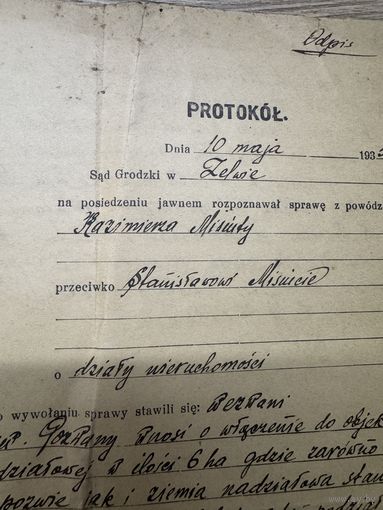 Odpis
PROTOKÓŁ.
Dnia 10 maja 193
Sąd Grodzki w Zelwie
na posiedzeniu jawnem rozpoznawał sprawę z powódz
Kazimierza Misiuty
przeciwko Stanisławowi Misiucie
o działy nieruchomości
o wywołaniu sprawy stawili się:
Pozwany wnosi o włączenie do objek
działowej w ilości 6 ha gdzie zarówno
pozwie jak i ziemia nadziałowa stan